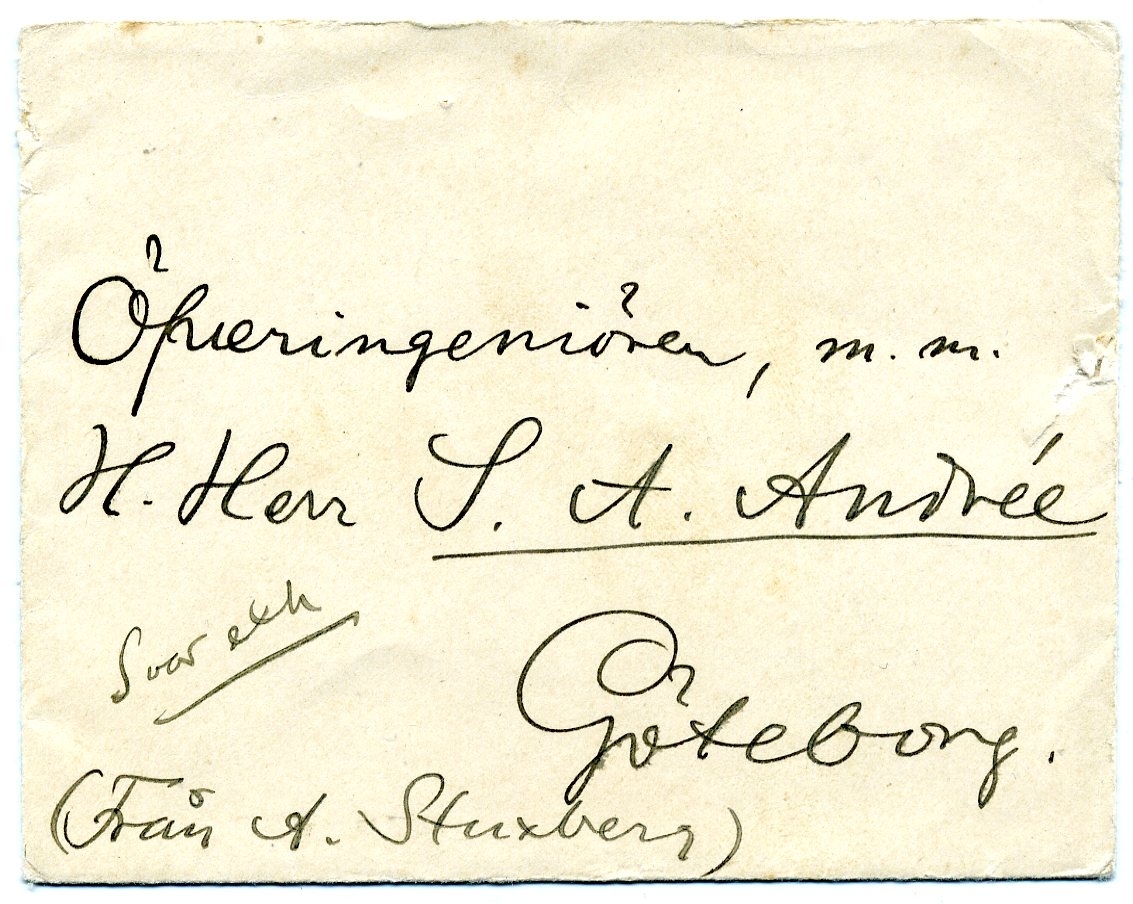 Öfveringeniören, m. m.
H. Herr S. A. Andrée
Svar exh
Göteborg.
(Från A. Stuxberg)